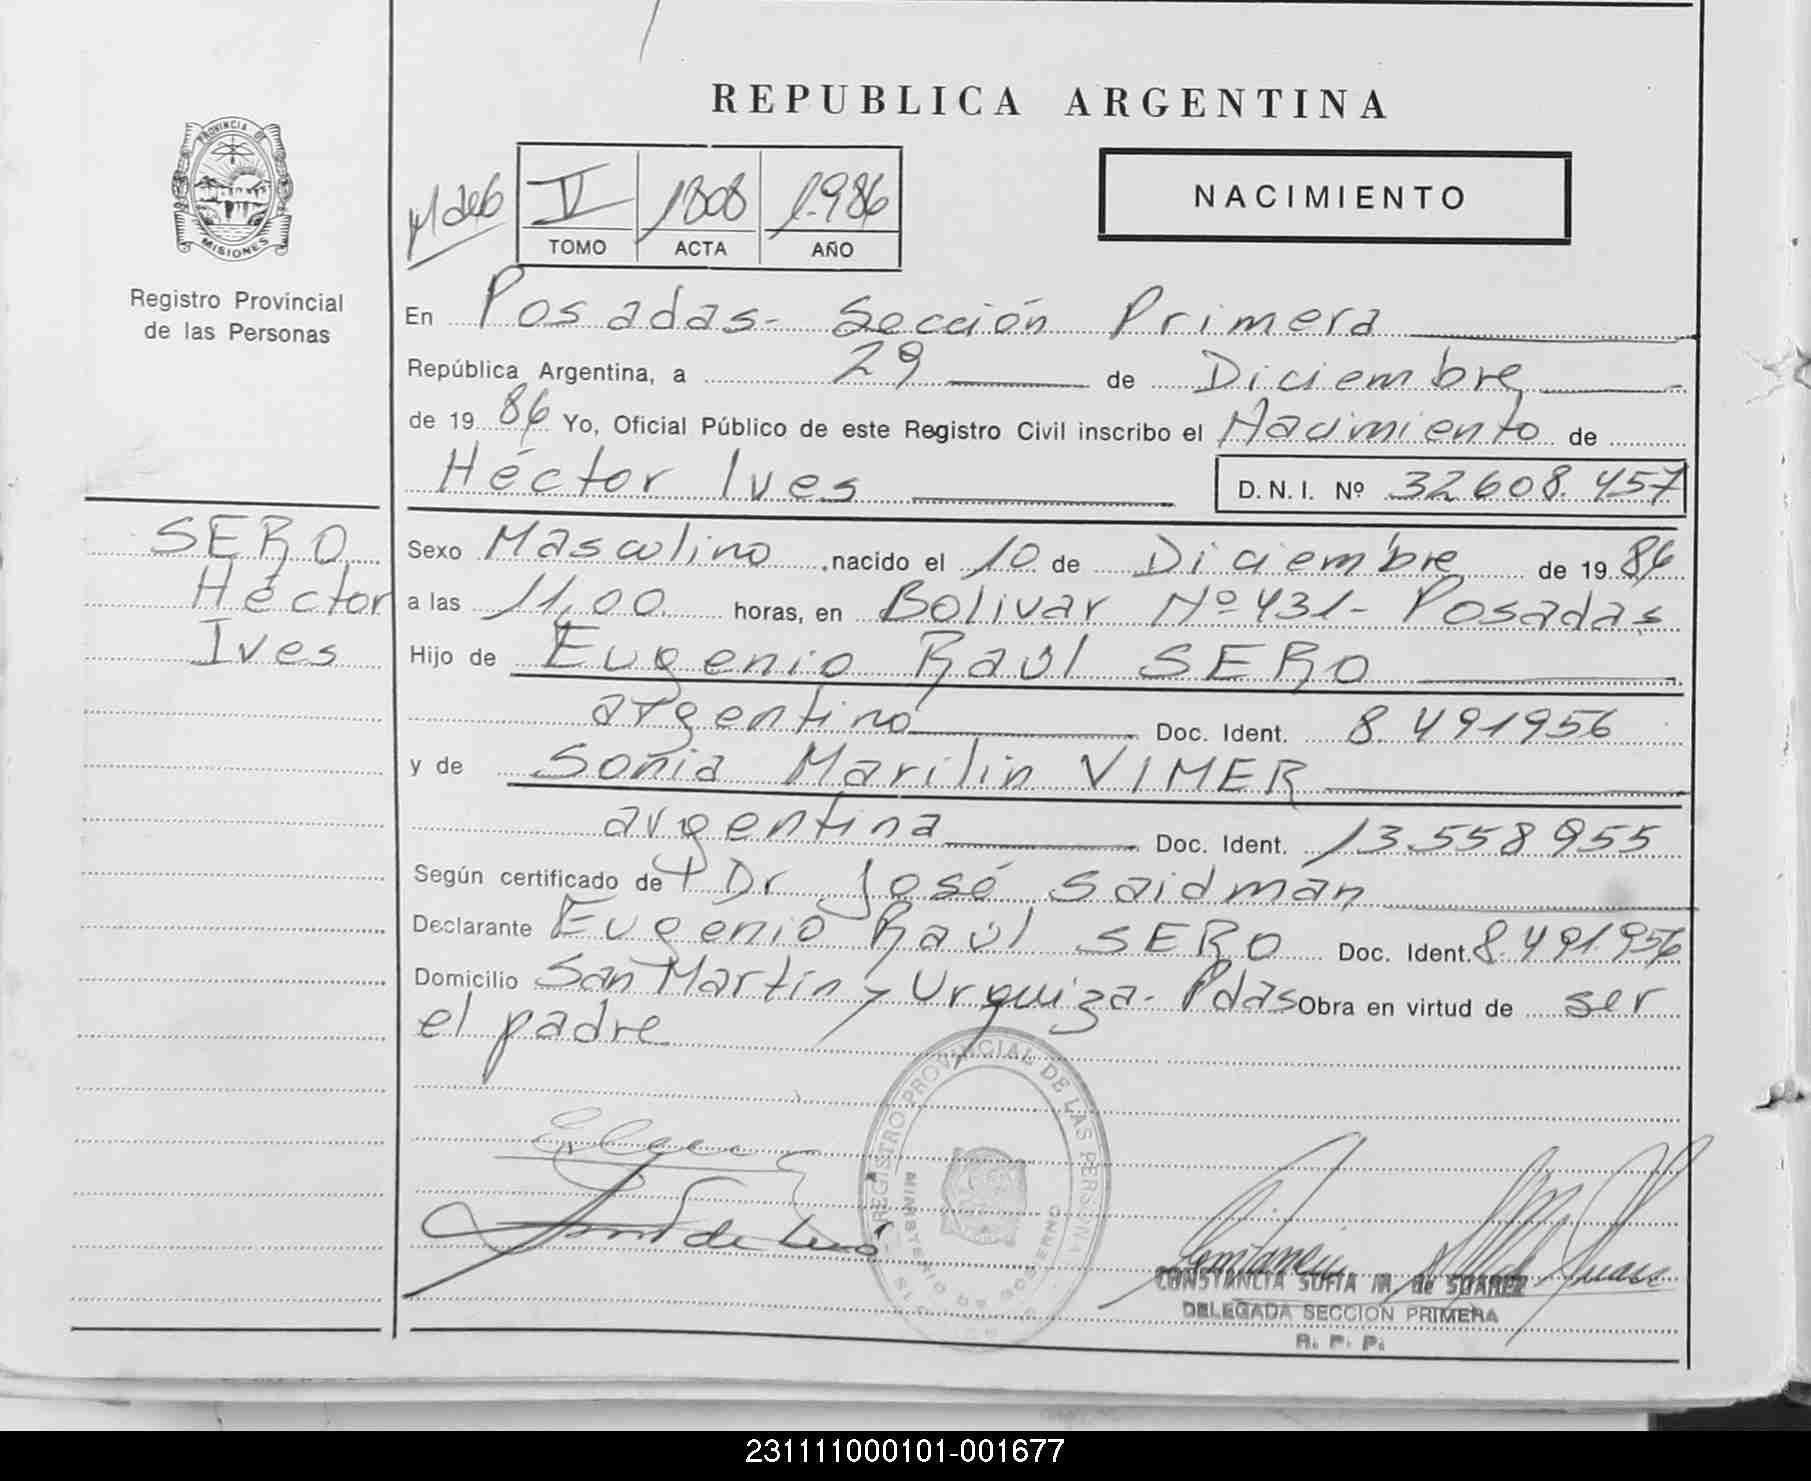 REPUBLICA ARGENTINA
PROVINCIA DE
MISIONES
Registro Provincial
de las Personas
V 1808 1.986
TOMO ACTA AÑO
NACIMIENTO
En Posadas- Sección Primera
República Argentina, a 29 de Diciembre
de 1986 Yo, Oficial Público de este Registro Civil inscribo el Nacimiento de
Héctor Ives D.N.I. Nº 32608.457
SERO
Héctor
Ives
Sexo Masculino, nacido el 10 de Diciembre de 1986
a las 11,00 horas, en Bolivar Nº 431- Posadas
Hijo de Eugenio Raúl SERO
argentino Doc. Ident. 8.491956
y de Sonia Marilin VIMER
argentina Doc. Ident. 13.558955
Según certificado de Dr José Saidman
Declarante Eugenio Raúl SERO Doc. Ident. 8.491.956
Domicilio San Martin y Urquiza- Pdas Obra en virtud de ser
el padre
REGISTRO PROVINCIAL DE LAS PERSONAS
MINISTERIO DE GOBIERNO
CONSTANCIA SOFIA M. de SUAREZ
DELEGADA SECCION PRIMERA
R. P. P.
231111000101-001677